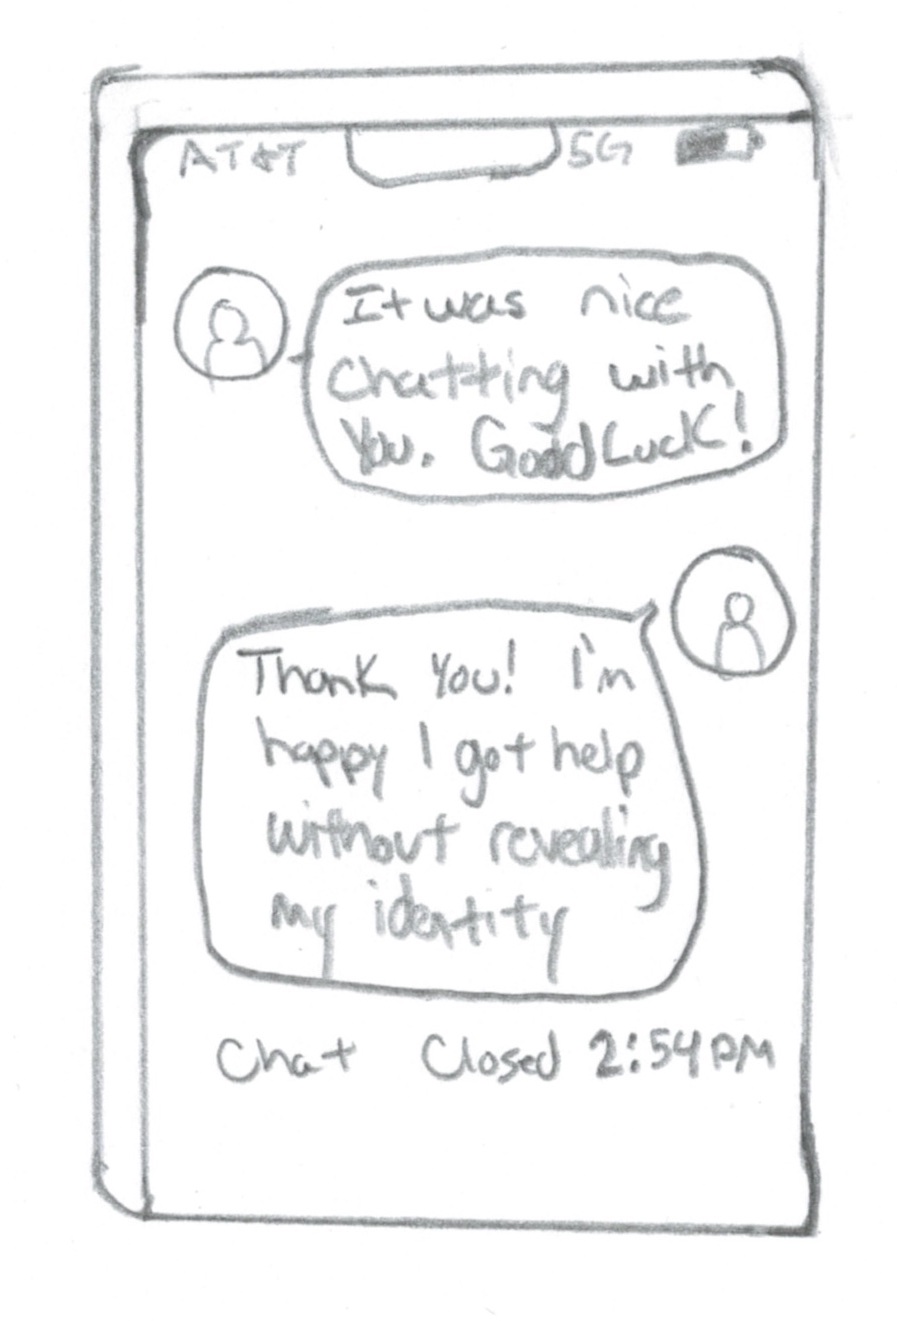 AT&T 5G
It was nice
chatting with
You. Good Luck!
Thank You! I'm
happy I got help
without revealing
my identity
Chat Closed 2:54PM